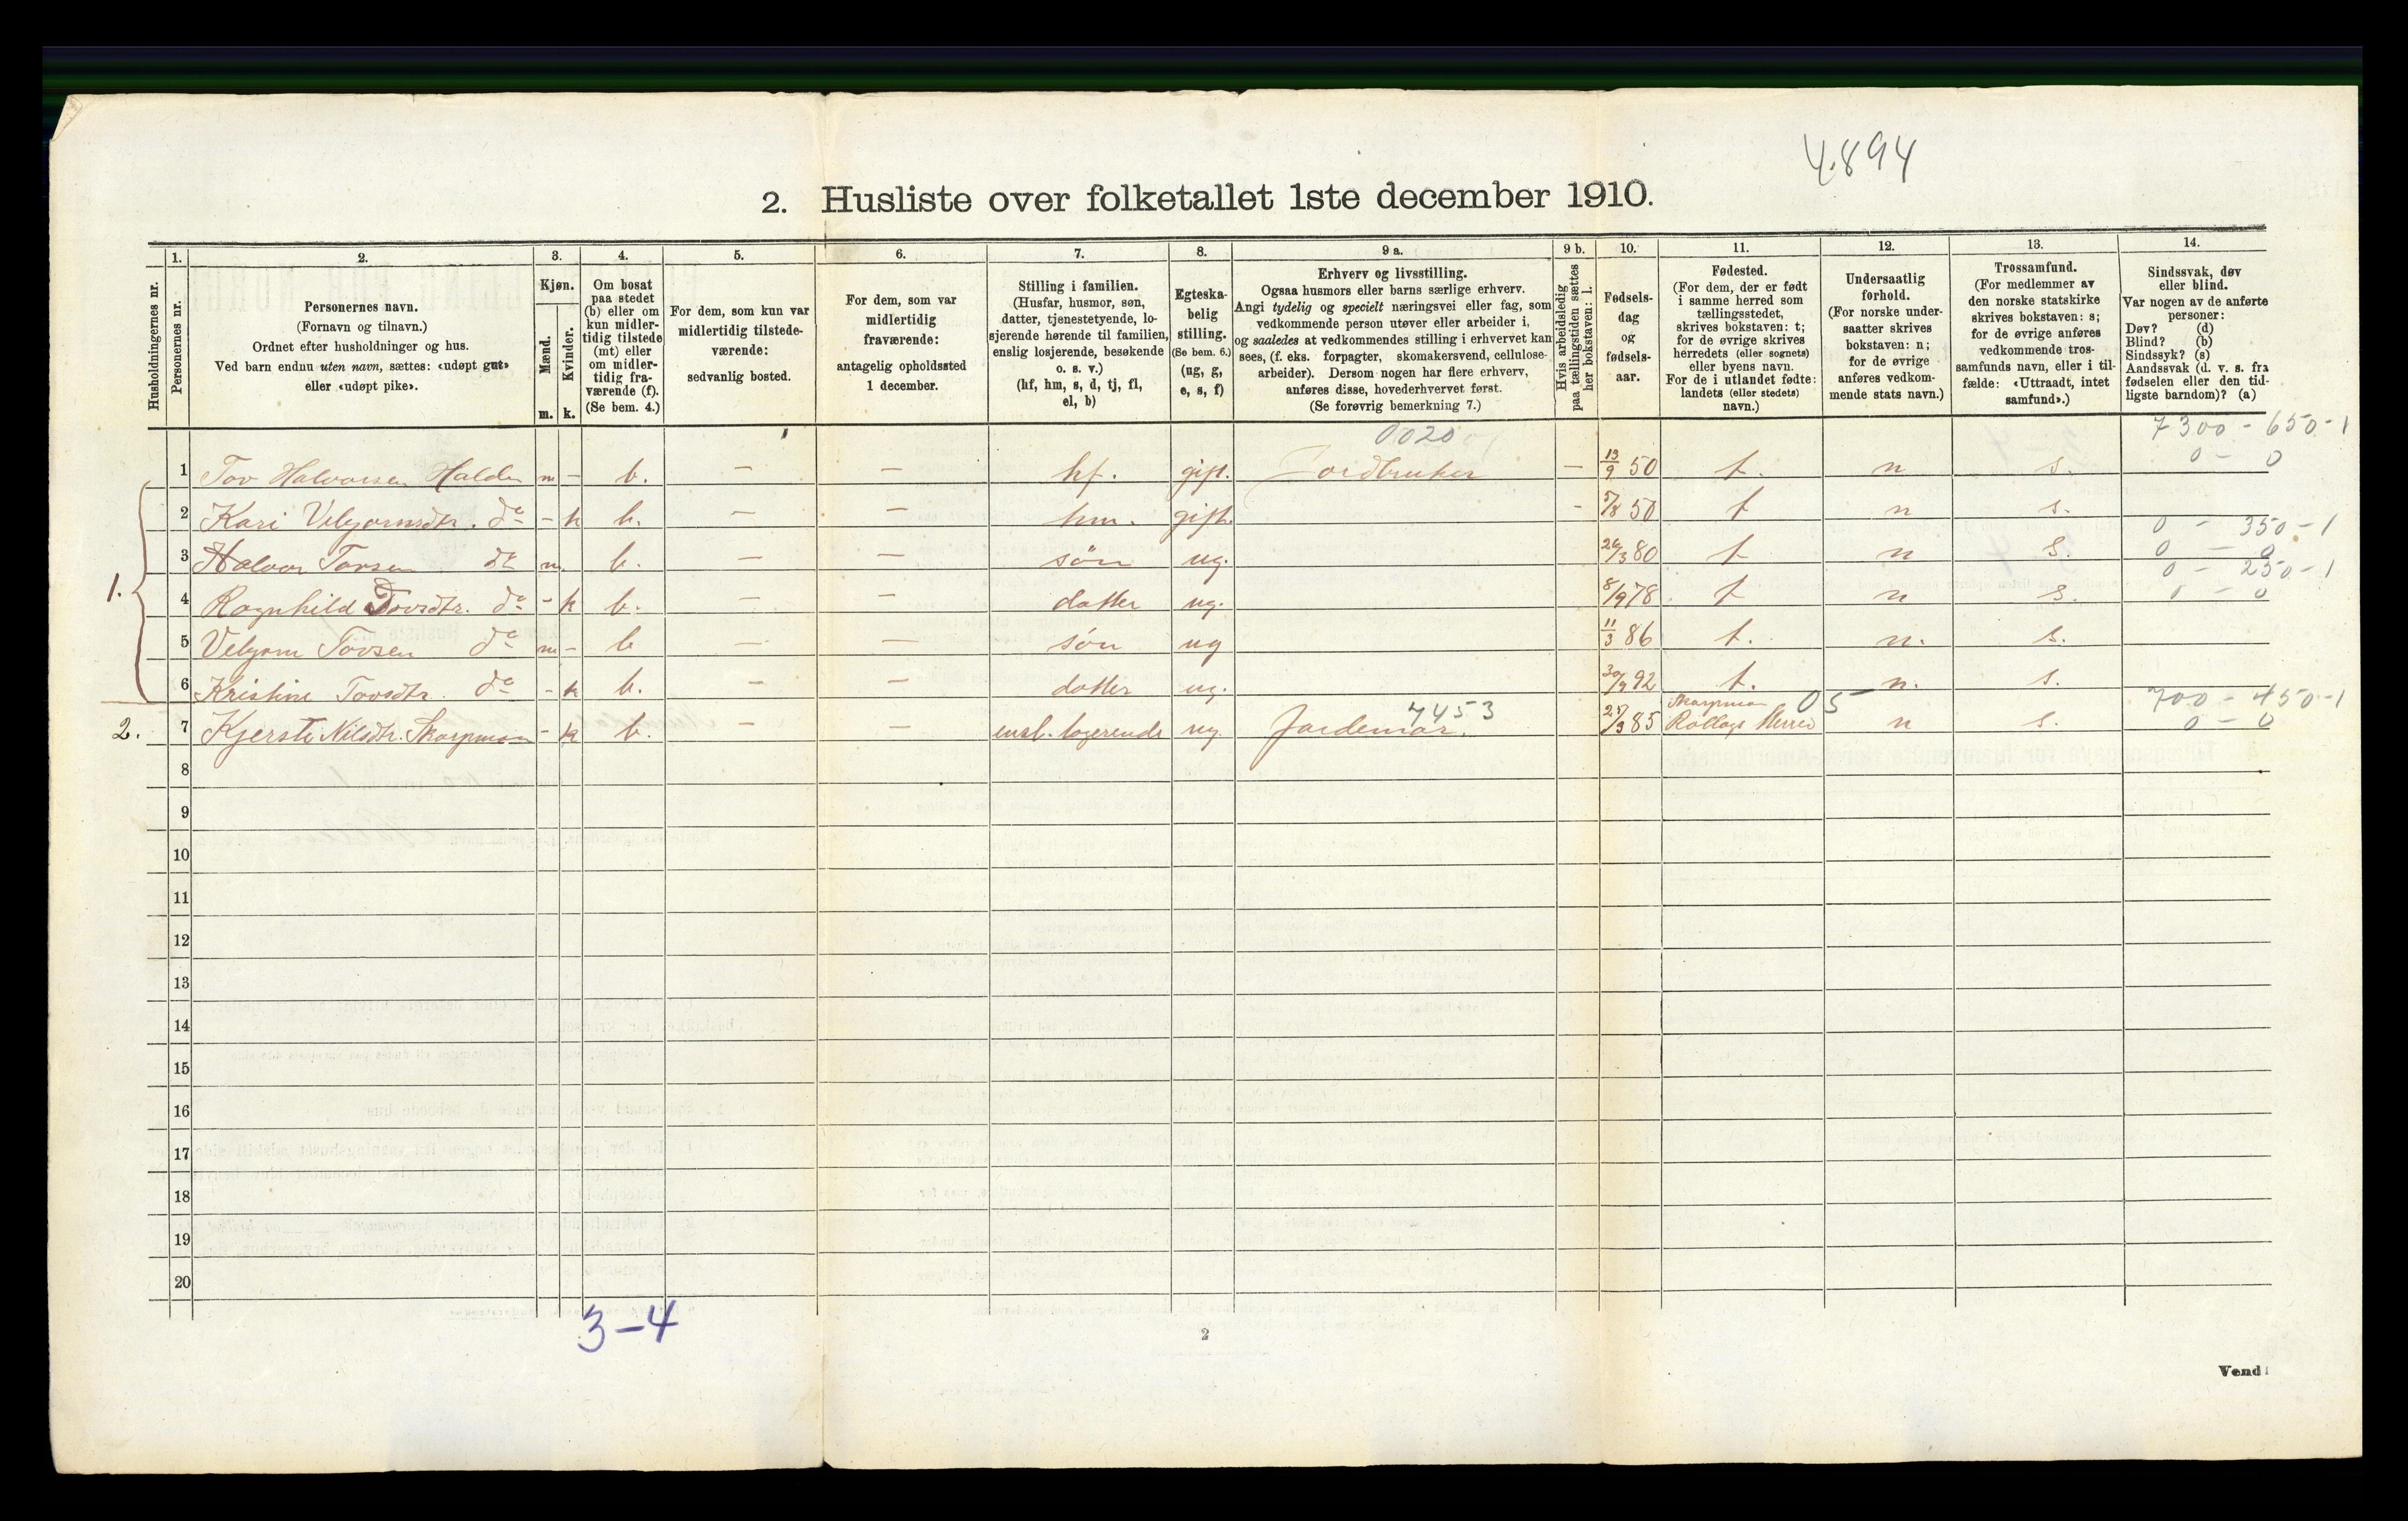 4894
2. Husliste over folketallet 1ste december 1910.
Husholdningernes nr.
1.
Personernes nr.
2.
Personernes navn.
(Fornavn og tilnavn.)
Ordnet efter husholdninger og hus.
Ved barn endnu uten navn, sættes: «udøpt gut»
eller «udøpt pike».
3.
Kjøn.
Mænd.
Kvinder.
m. k.
4.
Om bosat
paa stedet
(b) eller om
kun midler-
tidig tilstede
(mt) eller
om midler-
tidig fra-
værende (f).
(Se bem. 4.)
5.
For dem, som kun var
midlertidig tilstede-
værende:
sedvanlig bosted.
6.
For dem, som var
midlertidig
fraværende:
antagelig opholdssted
1 december.
7.
Stilling i familien.
(Husfar, husmor, søn,
datter, tjenestetyende, lo-
sjerende hørende til familien,
enslig losjerende, besøkende
o. s. v.)
(hf, hm, s, d, tj, fl,
el, b)
8.
Egteska-
belig
stilling.
(Se bem. 6.)
(ug, g,
e, s, f)
9 a.
Erhverv og livsstilling.
Ogsaa husmors eller barns særlige erhverv.
Angi tydelig og specielt næringsvei eller fag, som
vedkommende person utøver eller arbeider i,
og saaledes at vedkommendes stilling i erhvervet kan
sees, (f. eks. forpagter, skomakersvend, cellulose-
arbeider). Dersom nogen har flere erhverv,
anføres disse, hovederhvervet først.
(Se forøvrig bemerkning 7.)
9 b.
Hvis arbeidsledig
paa tællingstiden sættes
her bokstaven: l.
10.
Fødsels-
dag
og
fødsels-
aar.
11.
Fødested.
(For dem, der er født
i samme herred som
tællingsstedet,
skrives bokstaven: t;
for de øvrige skrives
herredets (eller sognets)
eller byens navn.
For de i utlandet fødte:
landets (eller stedets)
navn.)
12.
Undersaatlig
forhold.
(For norske under-
saatter skrives
bokstaven: n;
for de øvrige
anføres vedkom-
mende stats navn.)
13.
Trossamfund.
(For medlemmer av
den norske statskirke
skrives bokstaven: s;
for de øvrige anføres
vedkommende tros-
samfunds navn, eller i til-
fælde: «Uttraadt, intet
samfund».)
14.
Sindssvak, døv
eller blind.
Var nogen av de anførte
personer:
Døv? (d)
Blind? (b)
Sindssyk? (s)
Aandssvak (d. v. s. fra
fødselen eller den tid-
ligste barndom)? (a)
0020 7300 - 650-1
1 Tov Halvorsen Halden m - b. — — hf. gift. Jordbruker — 13/9 50 t. n s. 0 - 0
2 Kari Vebjørnsdtr. do - k b. — — hm. gift. - 5/8 50 t n s.
0 - 350-1
1. 3 Halvor Tovsen do m. b. — — søn ug. 26/3 80 t n s. 0 - 0
0 - 250-1
4 Ragnhild Tovsdtr. do - k b. — — datter ug. 8/9 78 t n s. 0 - 0
5 Vebjørn Tovsen do m - b — — søn ug 11/3 86 t. n. s.
6 Kristine Tovsdtr. do - k b. — — datter ug. 30/9 92 t. n. s.
7453 05 700 - 450-1
2. 7 Kjersti Nilsdtr. Skarpmoen - k b. — — ensl. logerende ug. Jordemor. 25/3 85 Skarpmoen Rollags Herred n s. 0 - 0
8
9
10
11
12
13
14
15
16
17
18
19
20
3-4
2
Vend!